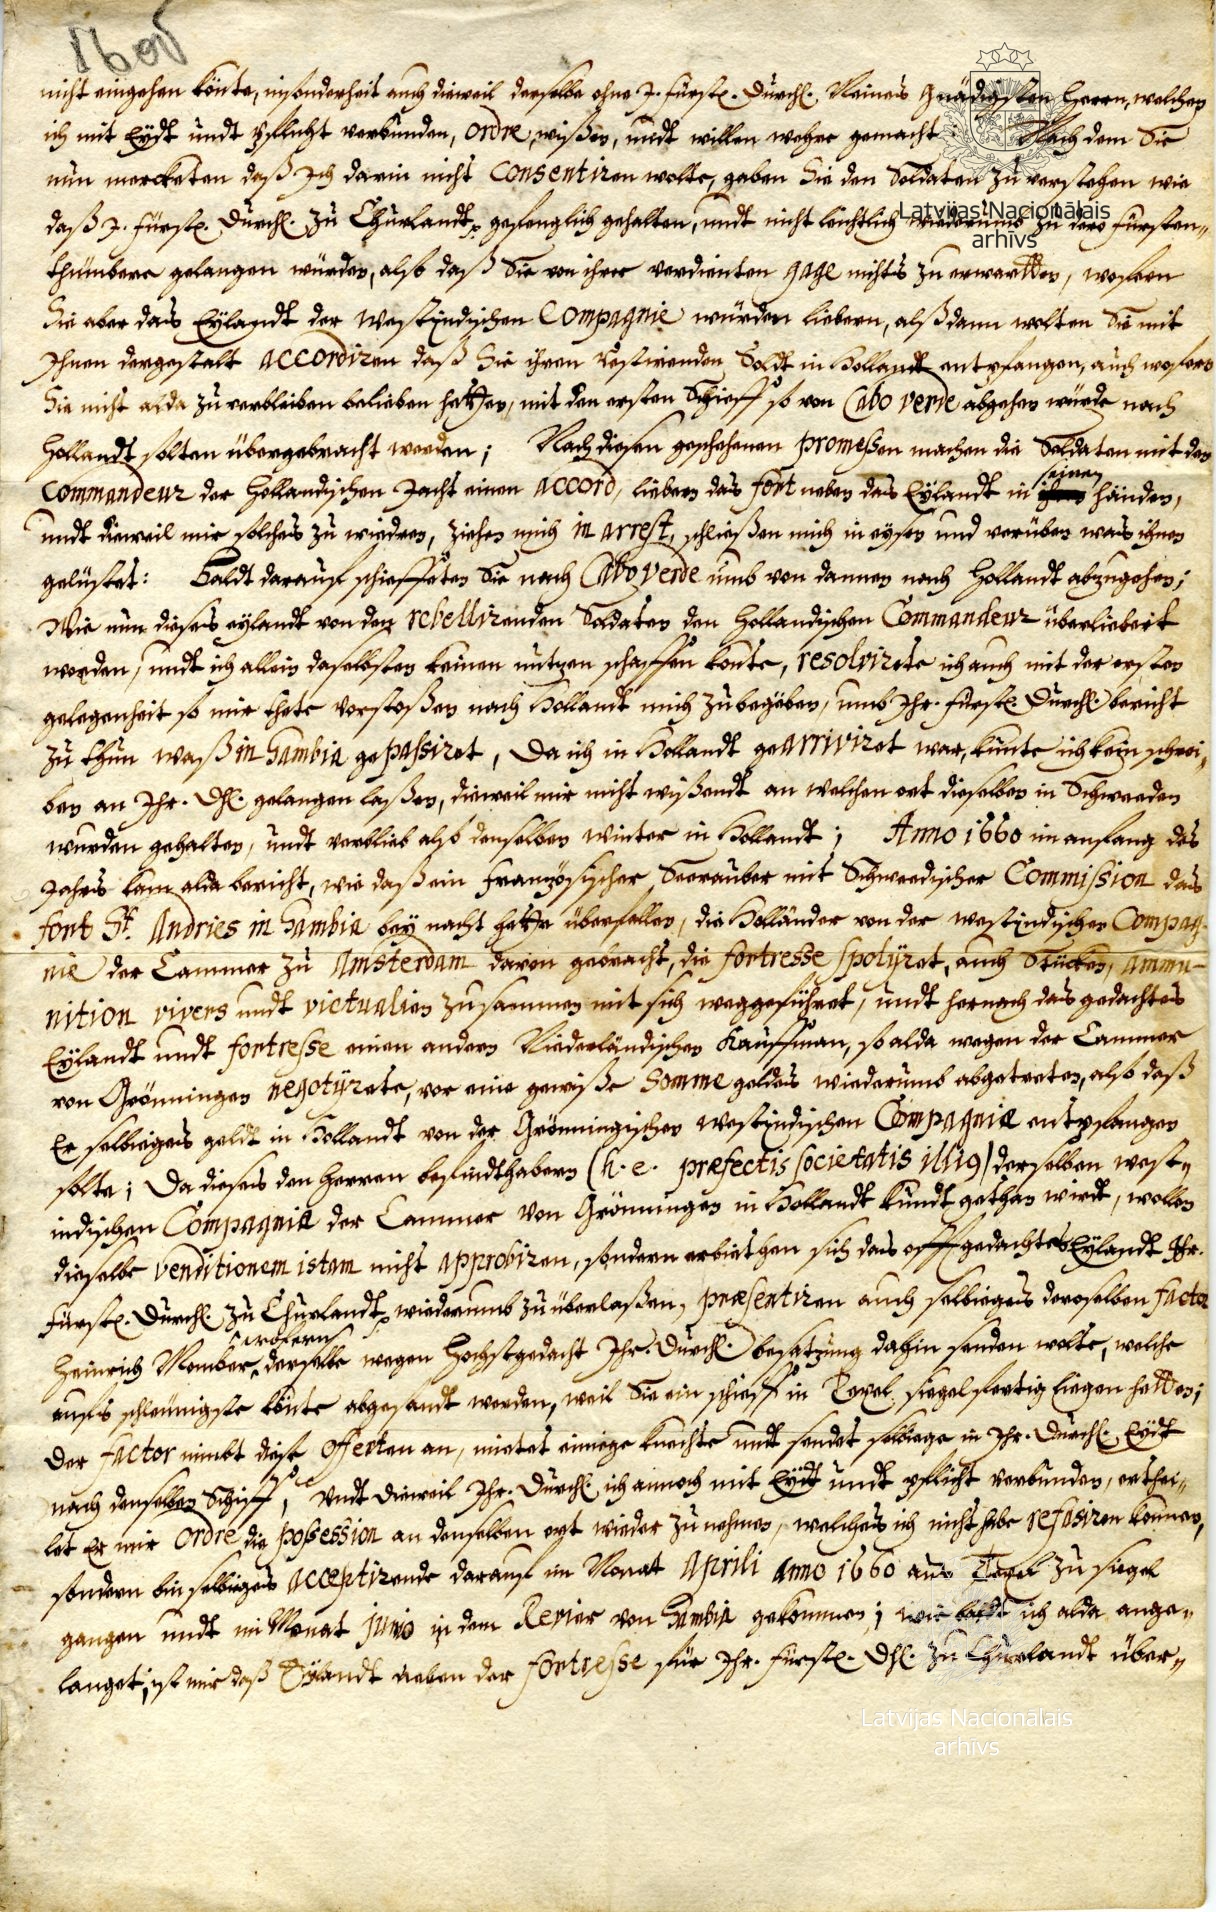 nicht eingehen könte, insonderheit auch dieweil derselbe ohne I. fürstl. Durchl. Meines Gnädigsten Herrn, welchen
ich mit Eydt undt pflicht verbunden, ordre, wißen, undt willen wehre gemacht: Nach dem Sie
nun mercketen daß Ich darin nicht Consentiren wolte, gaben Sie den Soldaten zu verstehen wie
daß I. fürstl. Durchl. zu Churlandt gefenglich gehalten, undt nicht leichtlich wiederumb zu dero fürsten-
thümbere gelangen würden, alß daß Sie von ihrer verdienten gage nichts zu erwartten, wofern
Sie aber das Eylandt der Westindischen Compagnie würden liebern, alß dann wolten Sie mit
Ihnen dergestalt accordiren daß Sie ihren restirenden Soldt in Hollandt entpfangen, auch wofern
Sie nicht alda zu verbleiben belieben hetten, mit den ersten Schieff so von Cabo verde abgehen würde nach
Hollandt solten übergebracht werden; Nach diesen geschehenen promeßen machen die Soldaten mit den
Commandeur der Hollandischen Jacht einen accord, liebern das fort neben das Eylandt in seinen händen,
undt dieweil mir solches zu wiedern, ziehen mich in arrest, schließen mich in eysen und verüben was ihnen
gelüstet: Baldt darauf schieffeten Sie nach Cabo verde umb von dannen nach Hollandt abzugehen;
Wie nun dieses eylandt von den rebellirenden Soldaten den Hollandischen Commandeur überliebert
worden, undt ich allein daselbsten keinen nutzen schaffen konte, resolvirete ich auch mit der ersten
gelegenheit so mir thete vorstoßen nach Hollandt mich zubegeben, umb Ihr. fürstl. Durchl. bericht
zu thun waß in Gambia gepassiret, Da ich in Hollandt gearriviret war, kunte ich kein schrei-
ben an Ihr. Dhl. gelangen laßen, dieweil mir nicht wißendt an welchen ort dieselben in Schweeden
wurden gehalten, undt verblieb alß denselben winter in Hollandt; Anno 1660 im anfang des
Jahrs kam alda bericht, wie daß ein Französischer Seerauber mit Schweedischer Commission das
fort St. Andries in Gambia bey nacht hette überfallen, die Holländer von der westindischen Compag-
nie der Cammer zu Amsterdam davon gebracht, die fortresse spolijret, auch Stücken, ammu-
nition vivers undt victualien zusammen mit sich weggeführet, undt hernach das gedachtes
Eylandt undt fortresse einen andern Niederländischen Kauffman, so alda wegen der Cammer
von Grönningen negotijrete, vor eine gewiße Somme geldes wiederumb abgetreten, alß daß
Er selbieges geldt in Hollandt von der Grönningischen westindischen Compagnia entpfangen
solte; Da dieses den Herren befindthabern (h. e. præfectis societatis illi9) derselben west-
indischen Compagnia der Cammer von Grönningen in Hollandt kundt gethan wirdt, wollen
dieselbe venditionem istam nicht approbiren, sondern erbiethen sich das offtgedachtes Eylandt Ihr.
fürstl. Durchl. zu Churlandt wiederumb zu überlaßen, præsentiren auch selbieges deroselben factor
Heinrich Momber, wofern derselbe wegen Hochstgedacht Ihr. Durchl. besatzung dahin senden wolte, welche
aufs schleunigste könte abgesandt werden, weil Sie ein schieff in Texel siegelfertig liegen hetten;
Der factor nimbt diese offerten an, mietet einiege knechte undt sendet selbiege in Ihr. Durchl. Eydt
nach denselben Schiff, Undt dieweil Ihr. Durchl. ich annoch mit Eydt undt pflicht verbunden, erthei-
let Er mir ordre die possession an denselben ort wieder zu nehmen, welches ich nicht habe refusiren können,
sondern bin selbieges acceptirende darauf im Monat Aprili Anno 1660 aus Texel zu siegel
gangen undt im Monat junio in dem Revier von Gambia gekommen; wie baldt ich alda ange-
langet, ist mir daß Eylandt neben der fortresse für Ihr. fürstl. Dhl. zu Churlandt über-
Latvijas Nacionālais
arhīvs
Latvijas Nacionālais
arhīvs